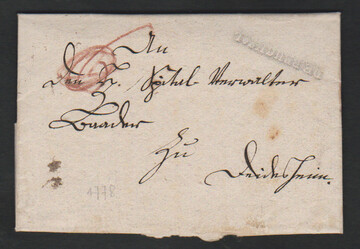 An
den H. Spital Verwalter
Baader
Zu
Deidesheim.
4778